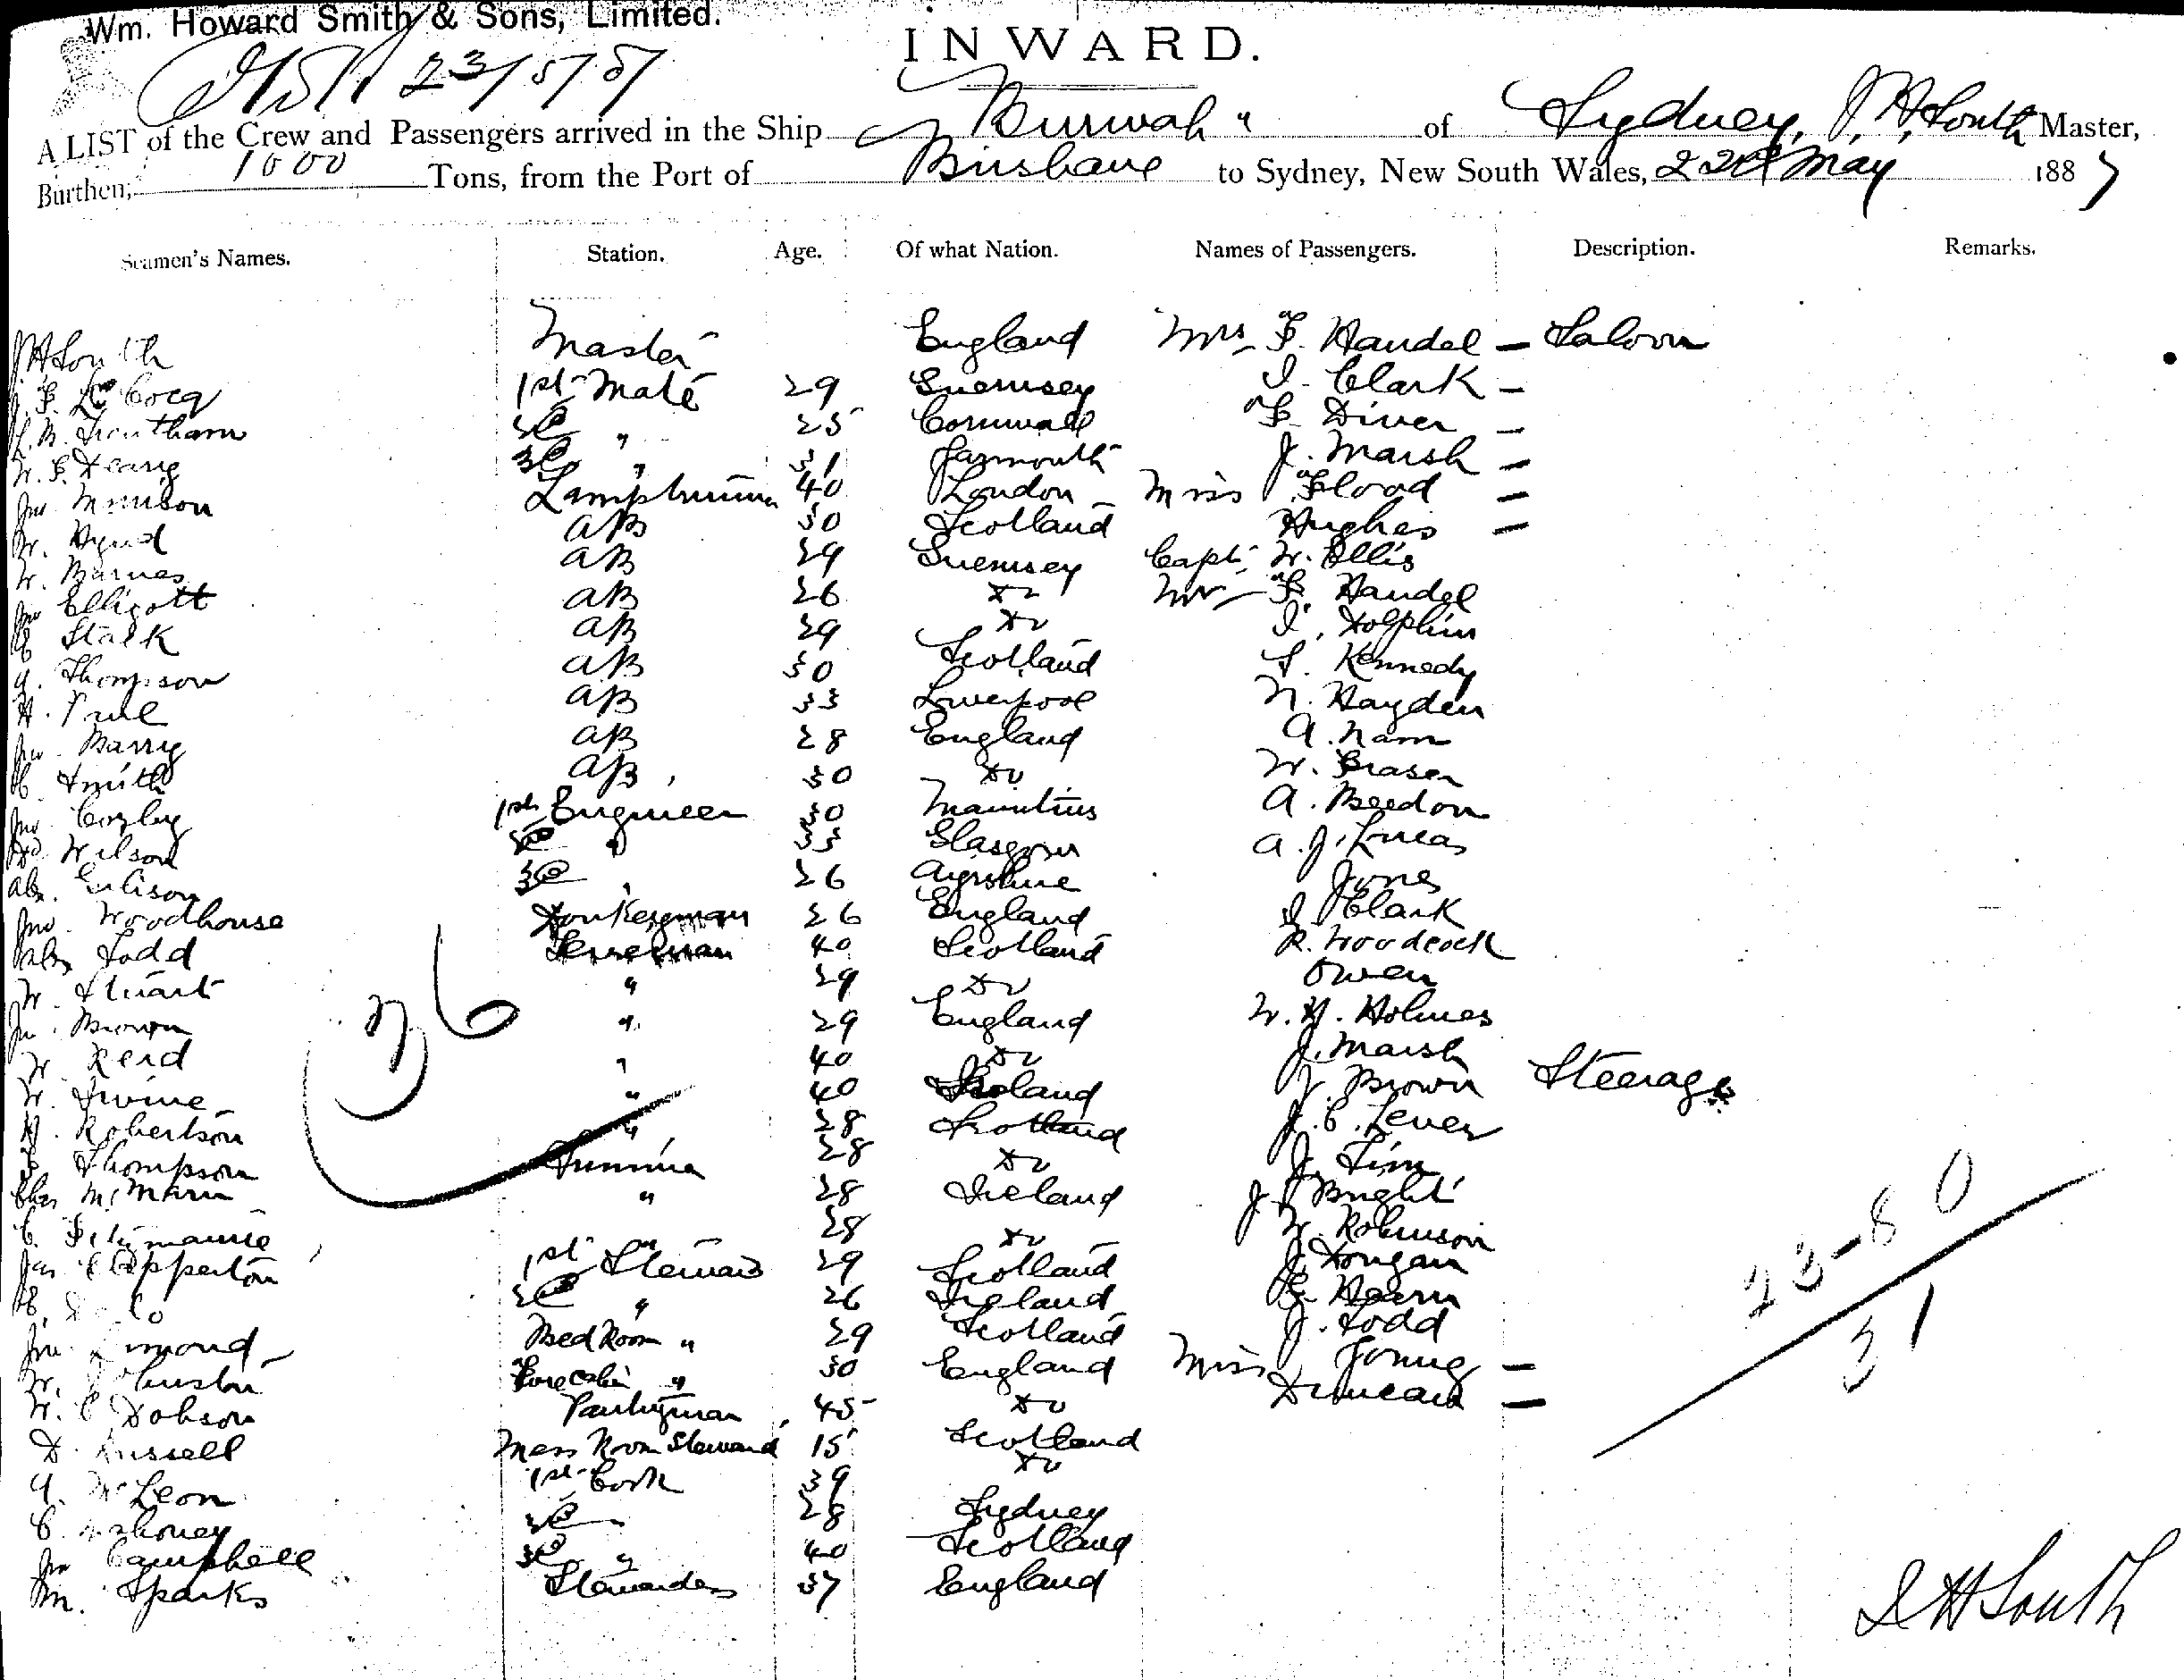 Wm. Howard Smith & Sons, Limited.
INWARD.
23/5/87
A LIST of the Crew and Passengers arrived in the Ship Burwah " of Sydney, J. H. South Master,
Burthen, 1000 Tons, from the Port of Brisbane to Sydney, New South Wales, 22nd May 1887
Seamen's Names. Station. Age. Of what Nation. Names of Passengers. Description. Remarks.
J H South Master England Mrs F. Handel — Saloon
F. Le Cocq 1st Mate 29 Guernsey Clark —
Trentham 2d " 25 Cornwall F Diver —
W. F. 3d " 31 Yarmouth J. Marsh —
Jno Morrison Lamptrimmer 40 London Miss Flood —
W. AB 30 Scotland Hughes —
W. Barnes AB 29 Guernsey Capt. W. Ellis
Jno Elligott AB 26 Do Mr F. Handel
Stark AB 29 Do Dolphin
Thompson AB 30 Scotland Kennedy
H. AB 33 Liverpool N. Hayden
Jno Barry AB 28 England A. Nam
Smith AB 30 Do W. Fraser
Jno 1st Engineer 30 Mauritius A. Beedon
Wilson 2d " 35 Glasgow A. J. Lucas
Alx. 3d 26 Ayrshire Jones
Jno Woodhouse Donkeyman 26 England Clark
Alx Todd Fireman 40 Scotland R. Woodcock
W. Stuart " 29 Do Owen
Jn Brown " 29 England W. H. Holmes
W Reid " 40 Do J. Marsh
W. Irvine " 40 Ireland J. Brown Steerage
H. Robertson " 28 Scotland J. C. Lever
Thompson Trimmer 28 Do J. Sim
Chas McMann " 28 Ireland J. Bright
C. Fitzmaurice " 28 Do W. Robinson
Jas Clapperton 1st Steward 29 Scotland J. Dougan
2d " 26 Ireland Hearn
Jno Bed Room " 29 Scotland J. Todd
W. Johnston Fore Cabin " 30 England Miss Young —
W. C Dobson Pantryman 45 Do Duncan —
D. Russell Mess Room Steward 15 Scotland
A. McLeon 1st Cook 39 Do
C. Mahoney 2d 28 Sydney
Jno Campbell 3d " 40 Scotland
M. Sparks Stewardess 37 England
36
23-8 0
31
J H South